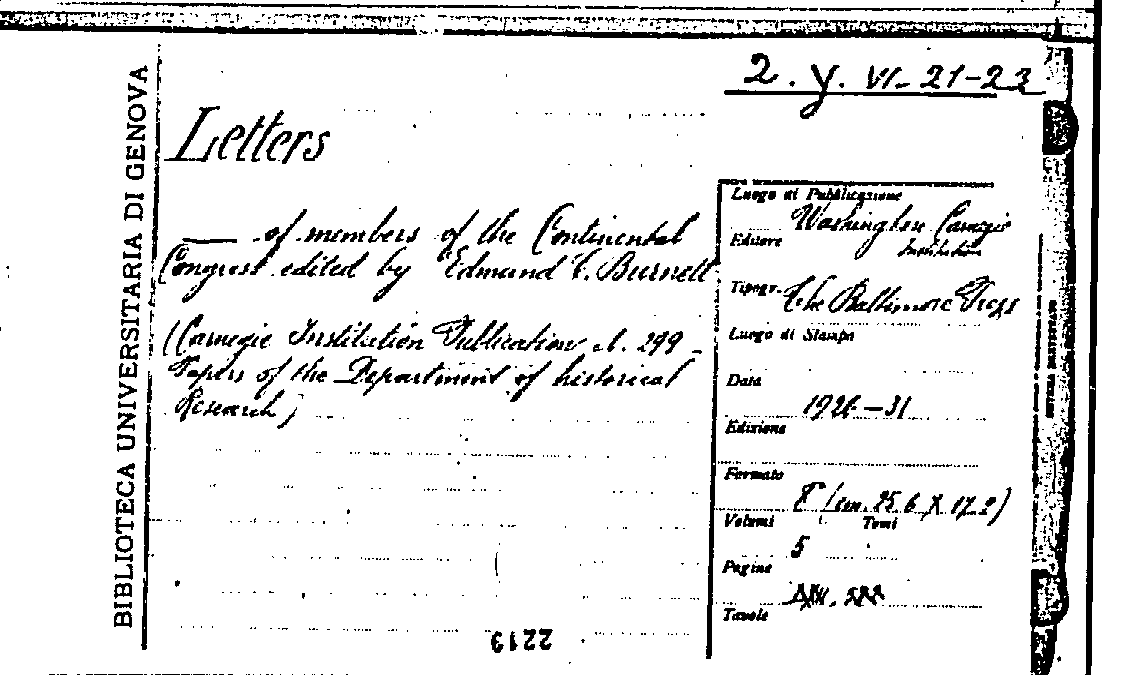 2. y. VI- 21-23
BIBLIOTECA UNIVERSITARIA DI GENOVA
Letters
— of members of the Continental
Congress edited by Edmund C. Burnett
(Carnegie Institution Publication N. 299 -
Papers of the Department of historical
Research)
Luogo di Pubblicazione
Washington Carnegie
Editore
Institution
Tipogr. The Baltimore Press
Luogo di Stampa
Data
1921-31
Edizione
Formato
8° (cm. 25.6 X 17.2)
Volumi Tomi
5
Pagine
Tavole
2213